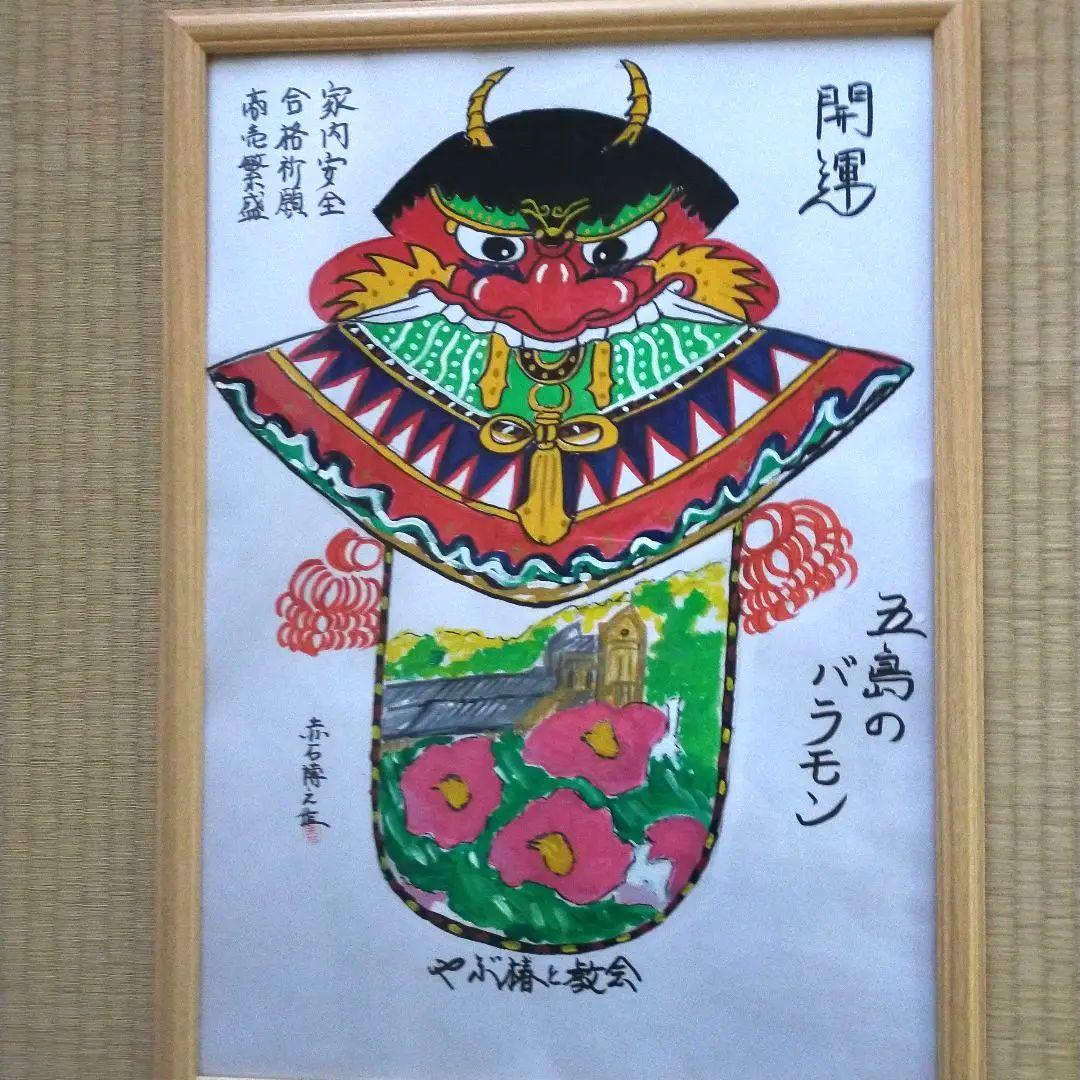 開運
家内安全
合格祈願
商売繁盛
五島の
バラモン
やぶ椿と教会
赤石博之